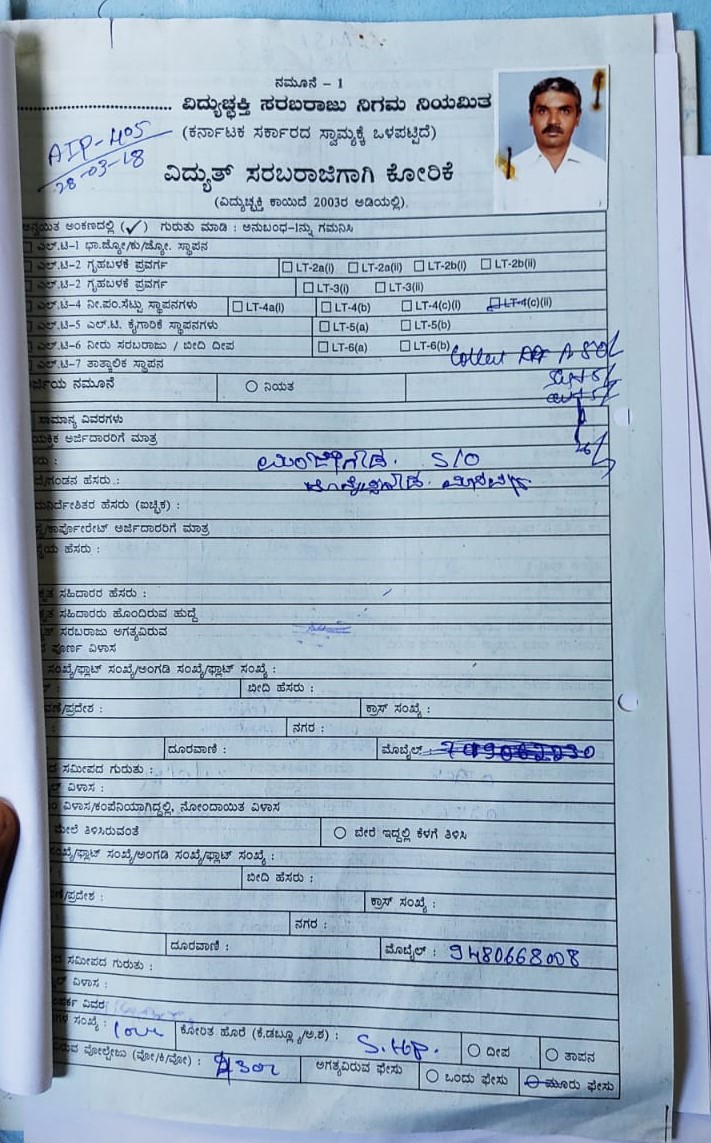 ನಮೂನೆ - 1
.............................. ವಿದ್ಯುಚ್ಛಕ್ತಿ ಸರಬರಾಜು ನಿಗಮ ನಿಯಮಿತ
(ಕರ್ನಾಟಕ ಸರ್ಕಾರದ ಸ್ವಾಮ್ಯಕ್ಕೆ ಒಳಪಟ್ಟಿದೆ)
AIP-405
28-03-18
ವಿದ್ಯುತ್ ಸರಬರಾಜಿಗಾಗಿ ಕೋರಿಕೆ
(ವಿದ್ಯುಚ್ಛಕ್ತಿ ಕಾಯಿದೆ 2003ರ ಅಡಿಯಲ್ಲಿ).
ನ್ವಯಿತ ಅಂಕಣದಲ್ಲಿ (✓) ಗುರುತು ಮಾಡಿ : ಅನುಬಂಧ-1ನ್ನು ಗಮನಿಸಿ
ಎಲ್.ಟಿ-1 ಭಾ.ಜ್ಯೋ/ಕು/ಜ್ಯೋ. ಸ್ಥಾಪನ
ಎಲ್.ಟಿ-2 ಗೃಹಬಳಕೆ ಪ್ರವರ್ಗ LT-2a(i) LT-2a(ii) LT-2b(i) LT-2b(ii)
ಎಲ್.ಟಿ-2 ಗೃಹಬಳಕೆ ಪ್ರವರ್ಗ LT-3(i) LT-3(ii)
ಎಲ್.ಟಿ-4 ನೀ.ಪಂ.ಸೆಟ್ಟು ಸ್ಥಾಪನಗಳು LT-4a(i) LT-4(b) LT-4(c)(i) LT-4(c)(ii)
ಎಲ್.ಟಿ-5 ಎಲ್.ಟಿ. ಕೈಗಾರಿಕೆ ಸ್ಥಾಪನಗಳು LT-5(a) LT-5(b)
ಎಲ್.ಟಿ-6 ನೀರು ಸರಬರಾಜು / ಬೀದಿ ದೀಪ LT-6(a) LT-6(b)
ಎಲ್.ಟಿ-7 ತಾತ್ಕಾಲಿಕ ಸ್ಥಾಪನ
ರ್ಜಿಯ ನಮೂನೆ ನಿಯತ
ಸಾಮಾನ್ಯ ವಿವರಗಳು
ಯಕ್ತಿಕ ಅರ್ಜಿದಾರರಿಗೆ ಮಾತ್ರ
ರು : S/O
ದೆ/ಗಂಡನ ಹೆಸರು .:
ಮನಿರ್ದೇಶಿತರ ಹೆಸರು (ಐಚ್ಛಿಕ) :
ಕಾರ್ಪೋರೇಟ್ ಅರ್ಜಿದಾರರಿಗೆ ಮಾತ್ರ
ಯ ಹೆಸರು :
ೃತ ಸಹಿದಾರರ ಹೆಸರು :
ೃತ ಸಹಿದಾರರು ಹೊಂದಿರುವ ಹುದ್ದೆ
ತ್ ಸರಬರಾಜು ಅಗತ್ಯವಿರುವ
ಪೂರ್ಣ ವಿಳಾಸ
ಸಂಖ್ಯೆ/ಫ್ಲಾಟ್ ಸಂಖ್ಯೆ/ಅಂಗಡಿ ಸಂಖ್ಯೆ/ಫ್ಲಾಟ್ ಸಂಖ್ಯೆ :
ಬೀದಿ ಹೆಸರು :
ಣೆ/ಪ್ರದೇಶ : ಕ್ರಾಸ್ ಸಂಖ್ಯೆ :
: ನಗರ :
ದೂರವಾಣಿ : ಮೊಬೈಲ್ :
ದ ಸಮೀಪದ ಗುರುತು :
ಲ್ ವಿಳಾಸ :
ವಿಳಾಸ/ಕಂಪೆನಿಯಾಗಿದ್ದಲ್ಲಿ, ನೋಂದಾಯಿತ ವಿಳಾಸ
ಮೇಲೆ ತಿಳಿಸಿರುವಂತೆ ಬೇರೆ ಇದ್ದಲ್ಲಿ ಕೆಳಗೆ ತಿಳಿಸಿ
ಸಂಖ್ಯೆ/ಫ್ಲಾಟ್ ಸಂಖ್ಯೆ/ಅಂಗಡಿ ಸಂಖ್ಯೆ/ಫ್ಲಾಟ್ ಸಂಖ್ಯೆ :
ಬೀದಿ ಹೆಸರು :
ಣೆ/ಪ್ರದೇಶ : ಕ್ರಾಸ್ ಸಂಖ್ಯೆ :
ನಗರ :
ದೂರವಾಣಿ : ಮೊಬೈಲ್ : 9480668008
ದ ಸಮೀಪದ ಗುರುತು :
ಲ್ ವಿಳಾಸ :
ಪರ್ಕ ವಿವರ
ಗಳ ಸಂಖ್ಯೆ : ಕೋರಿತ ಹೊರೆ (ಕೆ.ಡಬ್ಲ್ಯೂ/ಅ.ಶ) : 5.HP. ದೀಪ ತಾಪನ
ರುವ ವೋಲ್ಟೇಜು (ವೋ/ಕಿ/ವೋ) : ಅಗತ್ಯವಿರುವ ಫೇಸು ಒಂದು ಫೇಸು ಮೂರು ಫೇಸು